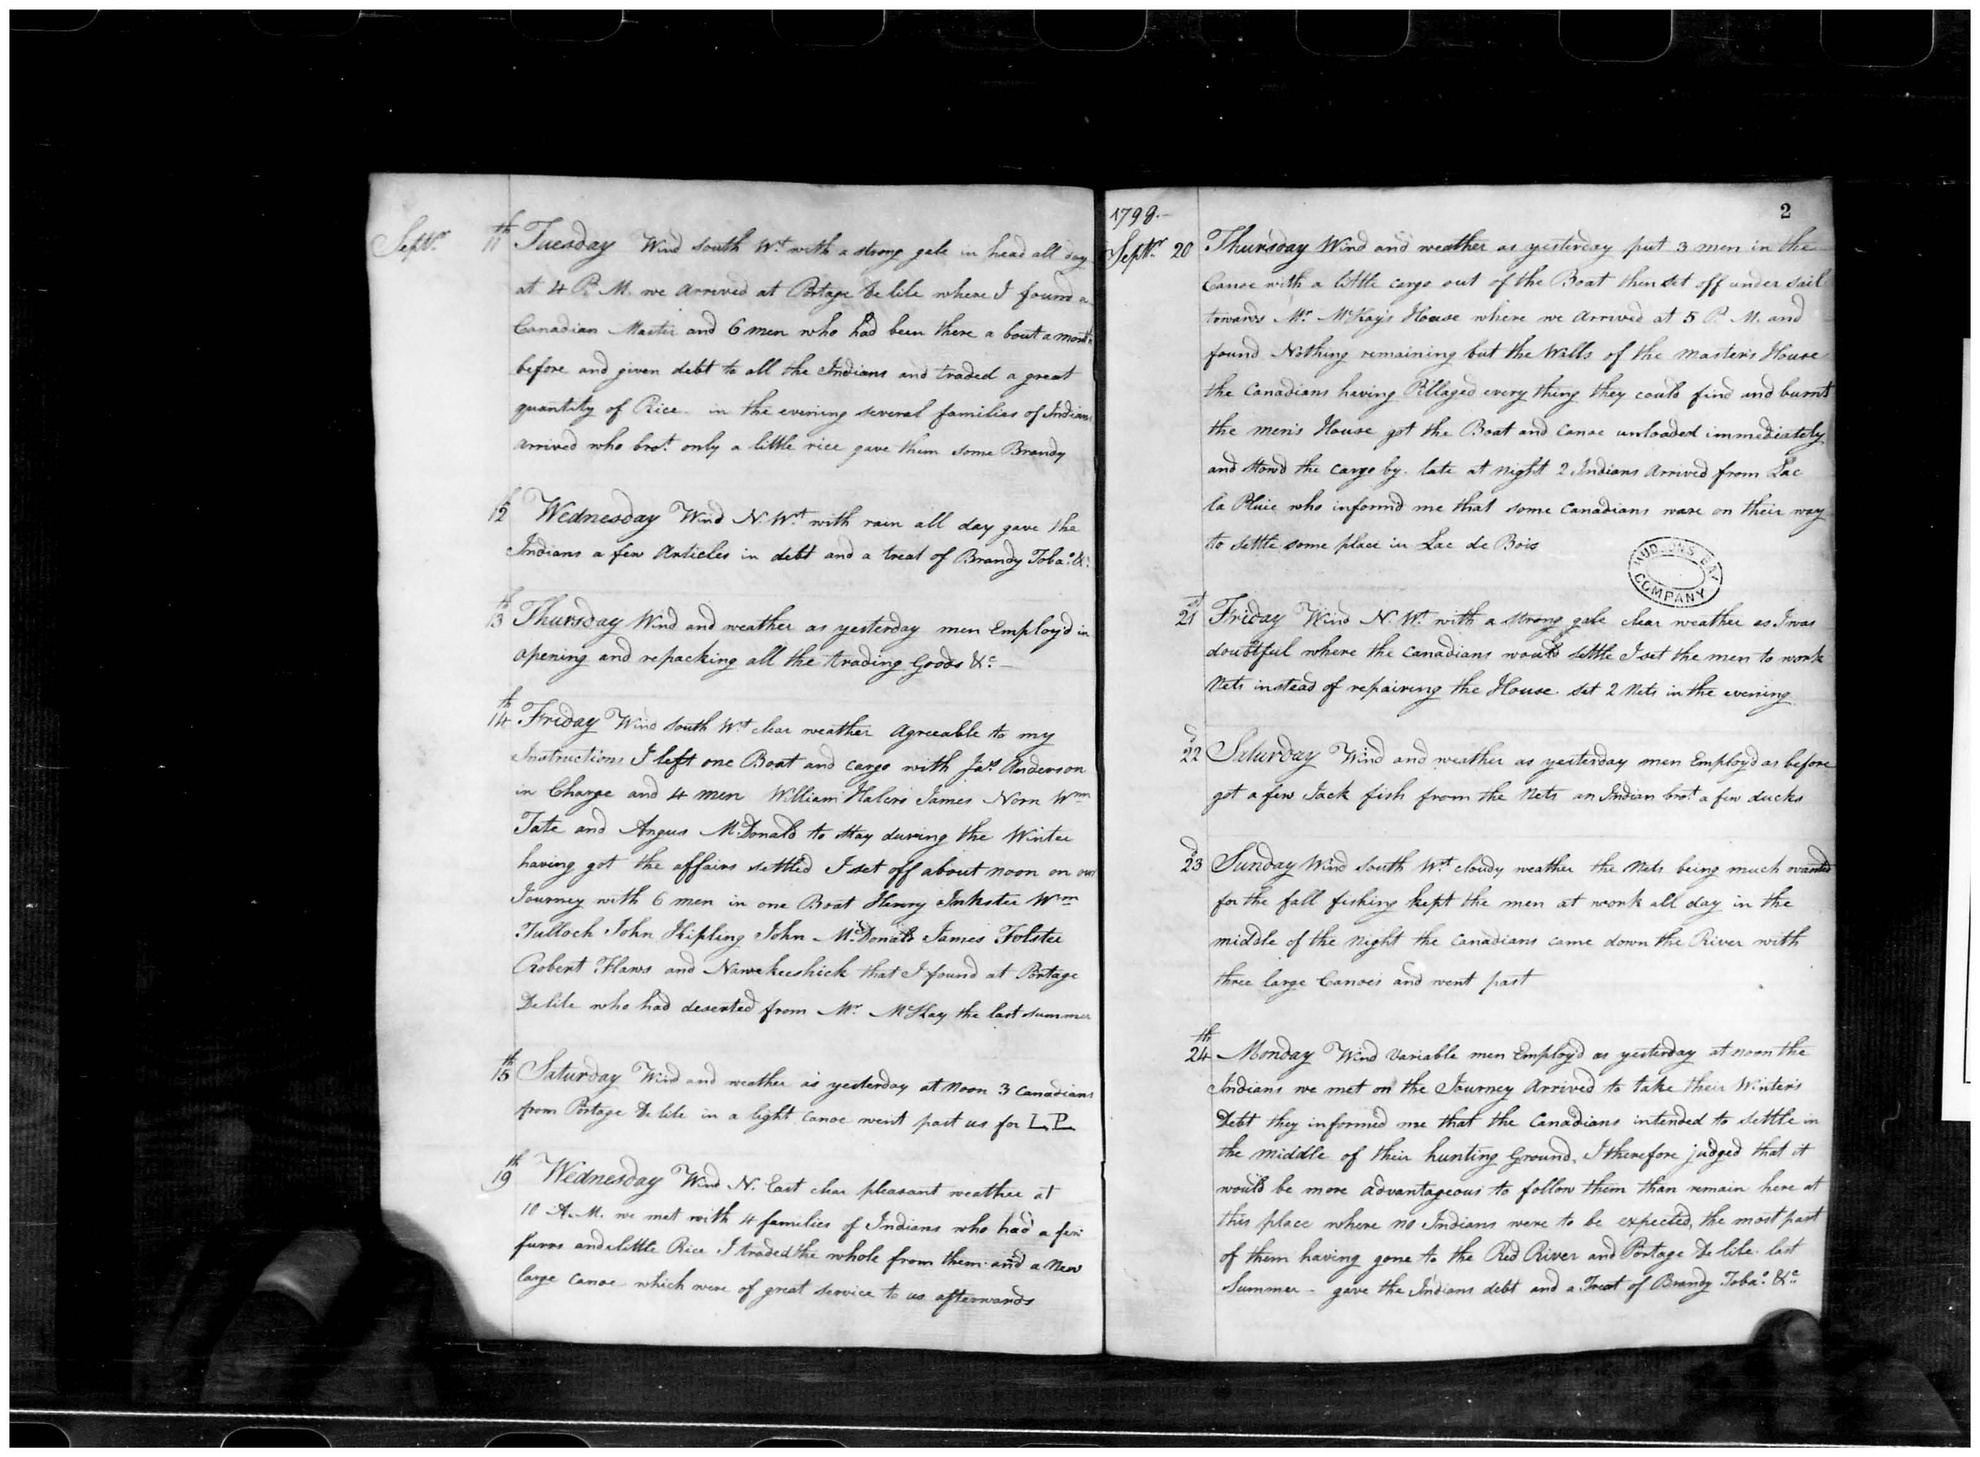 Septr. 11th Tuesday Wind South Wt with a strong gale in head all day
at 4 P. M. we arrived at Portage De lile where I found a
Canadian Master and 6 men who had been there a bout a month
before and given debt to all the Indians and traded a great
quantity of Rice in the evening several families of Indians
arrived who brot. only a little rice gave them some Brandy
12th Wednesday Wind N. Wt with rain all day gave the
Indians a few Articles in debt and a treat of Brandy Toba. &c.
13th Thursday Wind and weather as yesterday men Employ'd in
opening and repacking all the trading Goods &c.
14th Friday Wind South Wt clear weather Agreeable to my
Instructions I left one Boat and cargo with Jas Anderson
in Charge and 4 men William James Norn Wm
Tate and Angus McDonald to stay during the Winter
having got the affairs settled I set off about noon on our
Journey with 6 men in one Boat Henry Inkster Wm
Tulloch John Kipling John McDonald James Folster
Robert Flaws and Nawekeeshick that I found at Portage
De lile who had deserted from Mr. McKay the last summer
15th Saturday Wind and weather as yesterday at noon 3 Canadians
from Portage De lile in a light canoe went past us for L. P.
19th Wednesday Wind N. East clear pleasant weather at
10 A. M. we met with 4 families of Indians who had a few
furrs and a little Rice I traded the whole from them and a New
large canoe which were of great service to us afterwards
1798.
2
Septr. 20 Thursday Wind and weather as yesterday put 3 men in the
Canoe with a little cargo out of the Boat then set off under sail
towards Mr McKay's House where we arrived at 5 P. M. and
found Nothing remaining but the Walls of the Master's House
the Canadians having Pillaged every thing they could find and burnt
the men's House got the Boat and Canoe unloaded immediately
and stow'd the cargo by. late at night 2 Indians Arrived from Lac
la Pluie who inform'd me that some Canadians ware on their way
to settle some place in Lac de Bois
HUDSONS BAY COMPANY
21st Friday Wind N. Wt. with a strong gale clear weather as I was
doubtful where the Canadians would settle I set the men to work
Nets instead of repairing the House. set 2 Nets in the evening
22d Saturday Wind and weather as yesterday men Employ'd as before
got a few Jack fish from the Nets an Indian brot a few ducks
23d Sunday Wind South Wt cloudy weather the Nets being much wanted
for the fall fishing kept the men at work all day in the
middle of the Night the Canadians came down the River with
three large Canoes and went past
24th Monday Wind Variable men Employ'd as yesterday at noon the
Indians we met on the Journey Arrived to take their Winter's
Debt they informed me that the Canadians intended to settle in
the middle of their hunting Ground, I therefore judged that it
would be more advantageous to follow them than remain here at
this place where no Indians were to be expected, the most part
of them having gone to the Red River and Portage De lile last
Summer - gave the Indians debt and a Treat of Brandy Toba. &c.